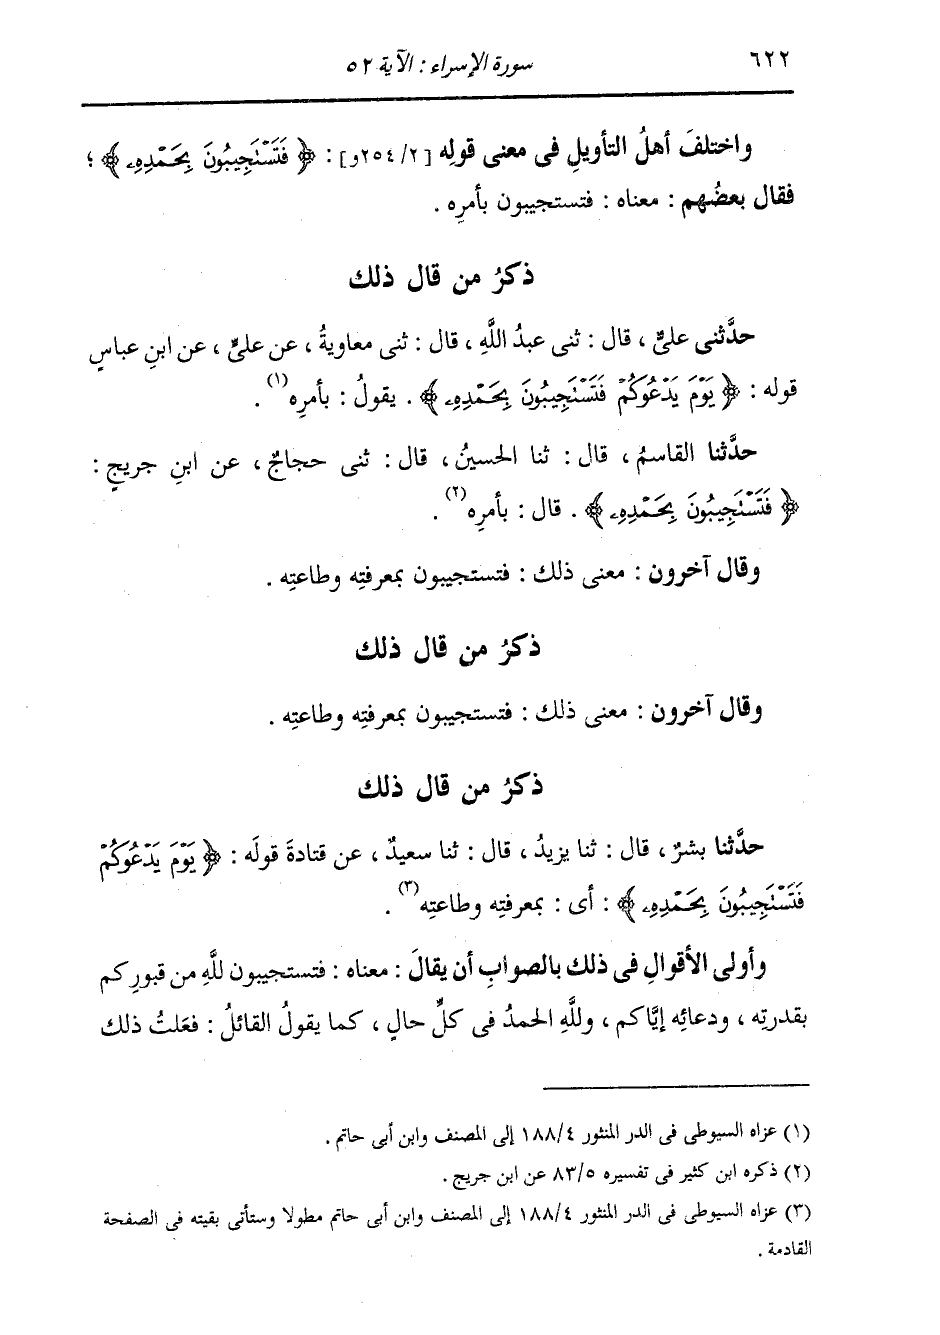 ٦٢٢
سورة الإسراء : الآية ٥٢
واختلفَ أهلُ التأويلِ فى معنى قولِه [٢/٢٥٤و] : ﴿ فَتَسْتَجِيبُونَ بِحَمْدِهِۦ ﴾ ؛
فقال بعضُهم : معناه : فتستجيبون بأمرِه .
ذكرُ من قال ذلك
حدَّثنى علىٌّ ، قال : ثنى عبدُ اللَّهِ ، قال : ثنى معاويةُ ، عن علىٍّ ، عن ابنِ عباسٍ
قوله : ﴿ يَوْمَ يَدْعُوكُمْ فَتَسْتَجِيبُونَ بِحَمْدِهِۦ ﴾ . يقولُ : بأمرِه(١) .
حدَّثنا القاسمُ ، قال : ثنا الحسينُ ، قال : ثنى حجاجٌ ، عن ابنِ جريجٍ :
﴿ فَتَسْتَجِيبُونَ بِحَمْدِهِۦ ﴾ . قال : بأمرِه(٢) .
وقال آخرون : معنى ذلك : فتستجيبون بمعرفتِه وطاعتِه .
ذكرُ من قال ذلك
وقال آخرون : معنى ذلك : فتستجيبون بمعرفتِه وطاعتِه .
ذكرُ من قال ذلك
حدَّثنا بشرٌ ، قال : ثنا يزيدُ ، قال : ثنا سعيدٌ ، عن قتادةَ قولَه : ﴿ يَوْمَ يَدْعُوكُمْ
فَتَسْتَجِيبُونَ بِحَمْدِهِۦ ﴾ : أى : بمعرفتِه وطاعتِه(٣) .
وأولى الأقوالِ فى ذلك بالصوابِ أن يقالَ : معناه : فتستجيبون للَّهِ من قبورِكم
بقدرتِه ، ودعائِه إيَّاكم ، وللَّهِ الحمدُ فى كلِّ حالٍ ، كما يقولُ القائلُ : فعَلتُ ذلك
(١) عزاه السيوطى فى الدر المنثور ١٨٨/٤ إلى المصنف وابن أبى حاتم .
(٢) ذكره ابن كثير فى تفسيره ٨٣/٥ عن ابن جريج .
(٣) عزاه السيوطى فى الدر المنثور ١٨٨/٤ إلى المصنف وابن أبى حاتم مطولا وستأتى بقيته فى الصفحة
القادمة .